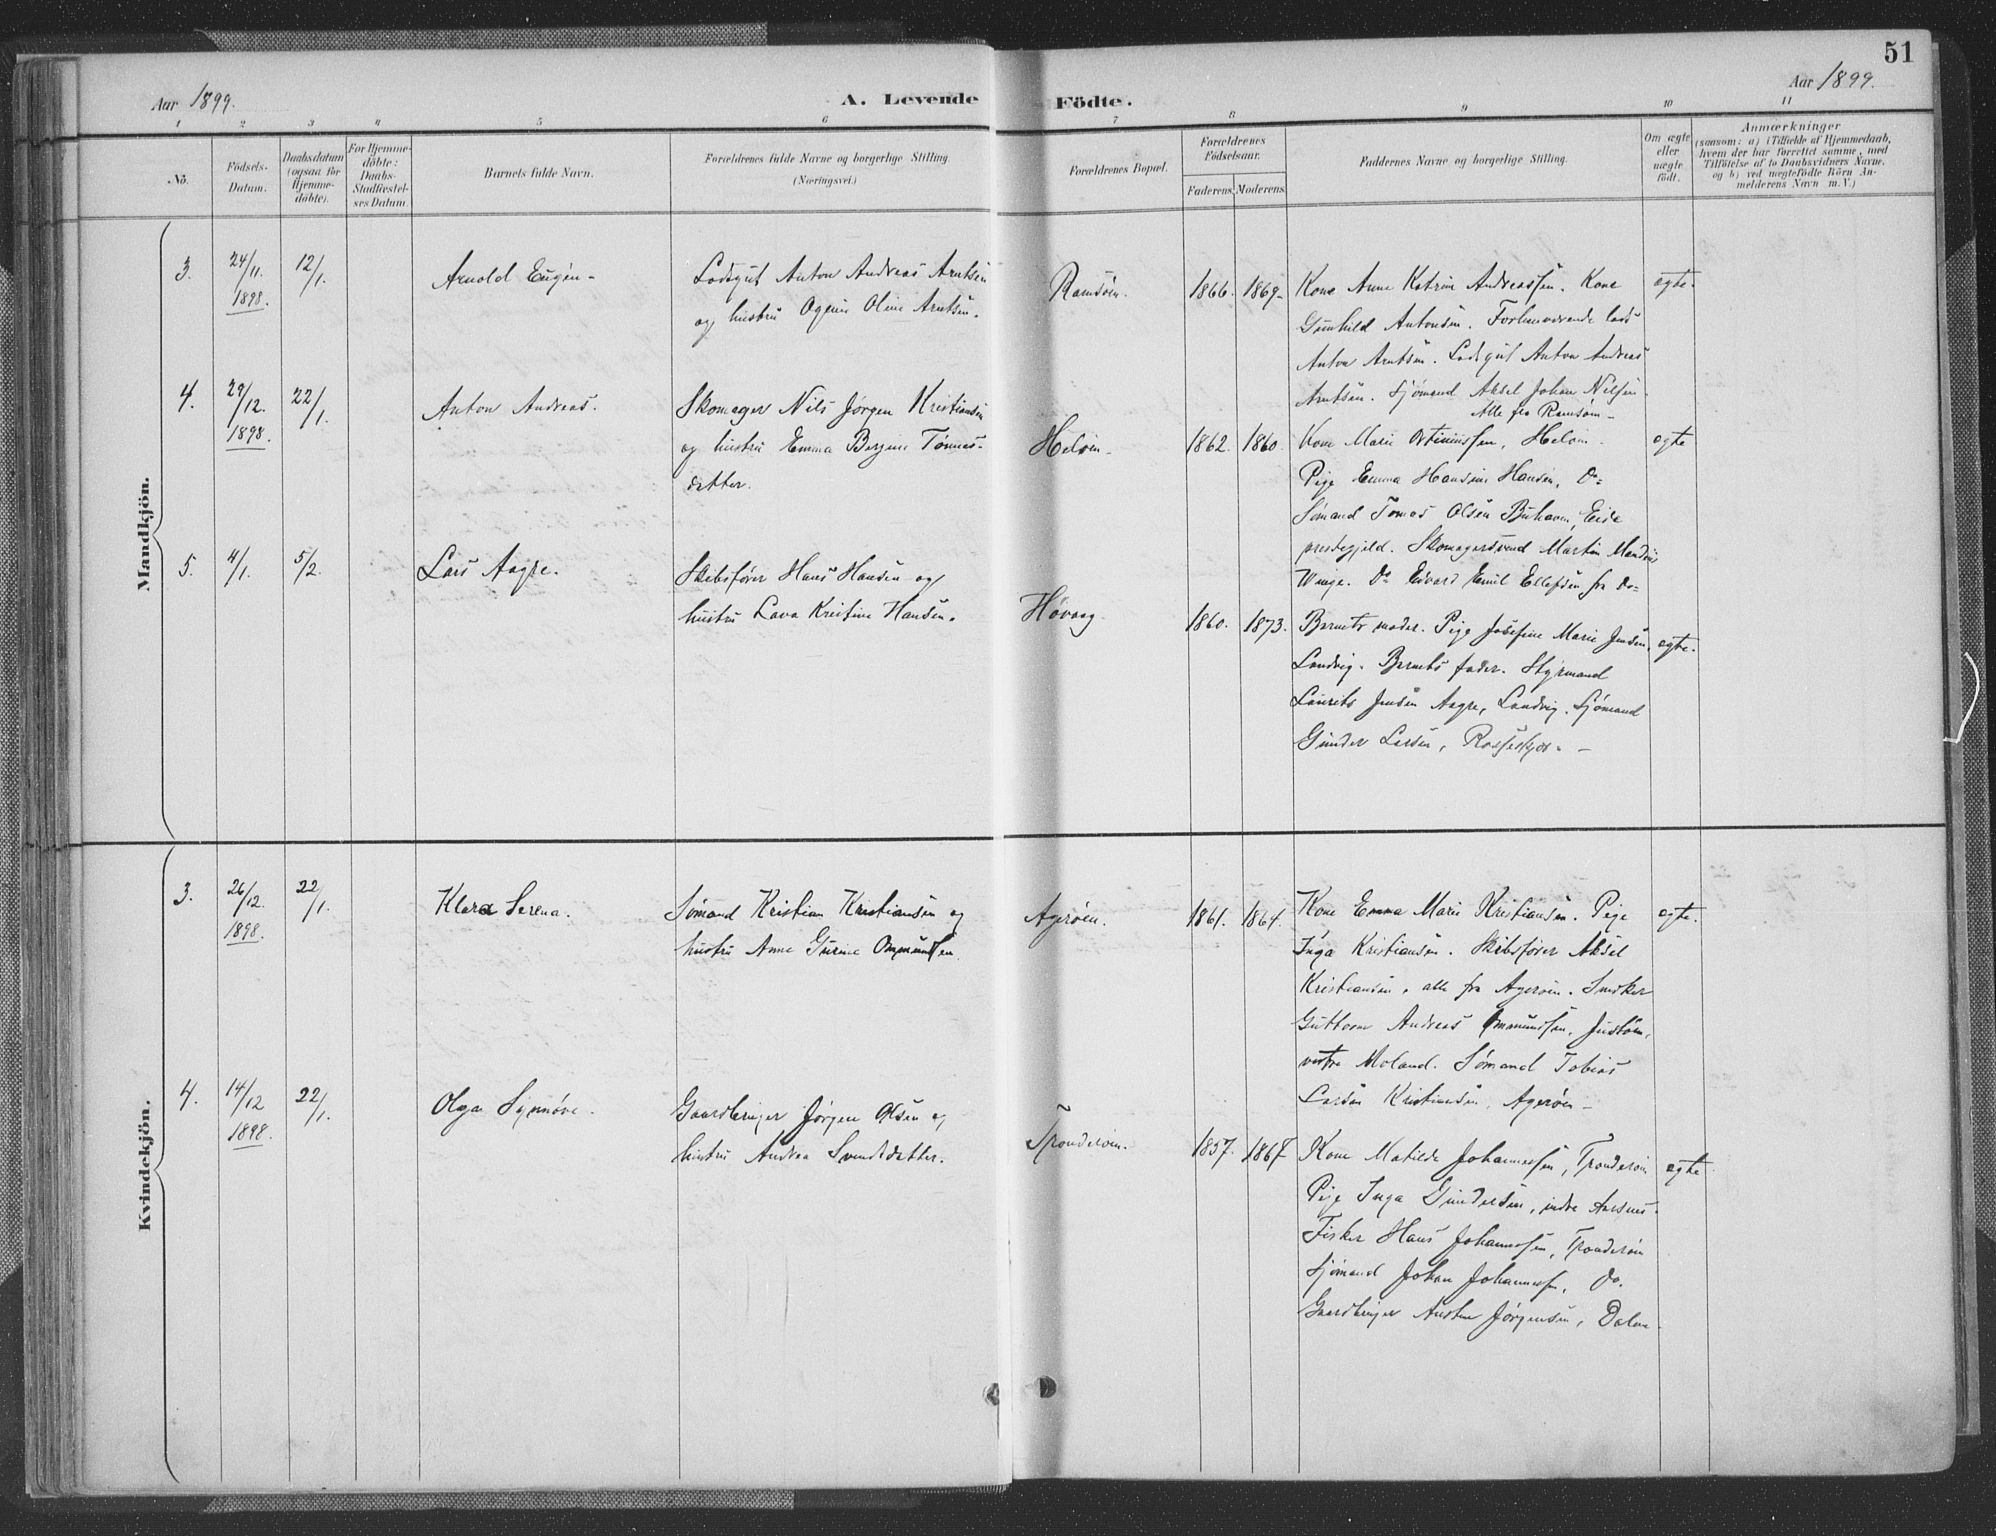 51
Aar 1899.
A. Levende Födte.
Aar 1899.
1 2 3 4 5 6 7 8 9 10 11
No.
Födsels-
Datum.
Daabsdatum
(ogsaa for
Hjemme-
døbte).
For Hjemme-
døbte:
Daabs-
Stadfæstel-
ses Datum.
Barnets fulde Navn.
Forældrenes fulde Navne og borgerlige Stilling
(Næringsvei.)
Forældrenes Bopæl.
Forældrenes
Fødselsaar.
Faderens. Moderens.
Faddernes Navne og borgerlige Stilling.
Om ægte
eller
uægte
født.
Anmærkninger
(saasom: a) i Tilfælde af Hjemmedaab,
hvem der har forrettet samme, med
Tilføielse af to Daabsvidners Navne.
og b) ved uægtefødte Børn An-
melderens Navn m. V.)
Mandkjön.
3. 24/11. 1898. 12/1. Arnold Eugén -
Lodsgut Anton Andreas Arntsen
og hustru Ogenie Oline Arntsen.
Ramsöen. 1866. 1869.
Kone Anne Katrine Andreassen. Kone
Gunhild Antonsen. Forhenværende lods
Anton Arntsen. Lodsgut Anton Andreas
Arntsen. Sjömand Aksel Johan Nilsen.
Alle fra Ramsöen -
ægte.
4. 29/12. 1898. 22/1. Anton Andreas.
Skomager Nils Jørgen Kristiansen
og hustru Emma Bergine Tønnes-
datter.
Helöen - 1862. 1860.
Kone Marie Ortiniussen, Helöen.
Pige Emma Hansine Hansen, Do
Sömand Tomas Olsen Buhavn, Eide
prestegjeld. Skomagersvend Martin Mandius
Winge. Do Edvard Emil Ellefsen fra Do
ægte
5. 4/1. 5/2. Lars Aagre.
Skibsfører Hans Hansen og
hustru Lava Kristine Hansen.
Høvaag 1860. 1873.
Barnets moder. Pige Josefine Marie Jensen,
Landvig. Barnets fader. Styrmand
Laurits Jensen Aagre, Landvig. Sjömand
Gunder Larsen,
ægte.
Kvindekjön.
3. 26/12. 1898. 22/1. Klara Serena.
Sömand Kristian Kristiansen og
hustru Anne Gurine Ommundsen.
Ageröen. 1861. 1864.
Kone Emma Marie Kristiansen. Pige
Inga Kristiansen. Skibsfører Aksel
Kristiansen, alle fra Ageröen. Snedker
Guttorm Andreas Ommundsen, Justöen,
vestre Moland. Sömand Tobias
Larsen Kristiansen, Ageröen -
ægte.
4. 14/12 1898. 22/1. Olga Synnöve.
Gaardbruger Jørgen Olsen og
hustru Andrea Svendsdatter.
Tronderöen. 1857. 1867
Kone Matilde Johannessen, Tronderöen
Pige Inga Gundersen, indre Aarsnes.
Fisker Hans Johannessen, Tronderöen
Sjömand Johan Johannessen, Do.
Gaardbruger Jørgensen, Dalen.
ægte